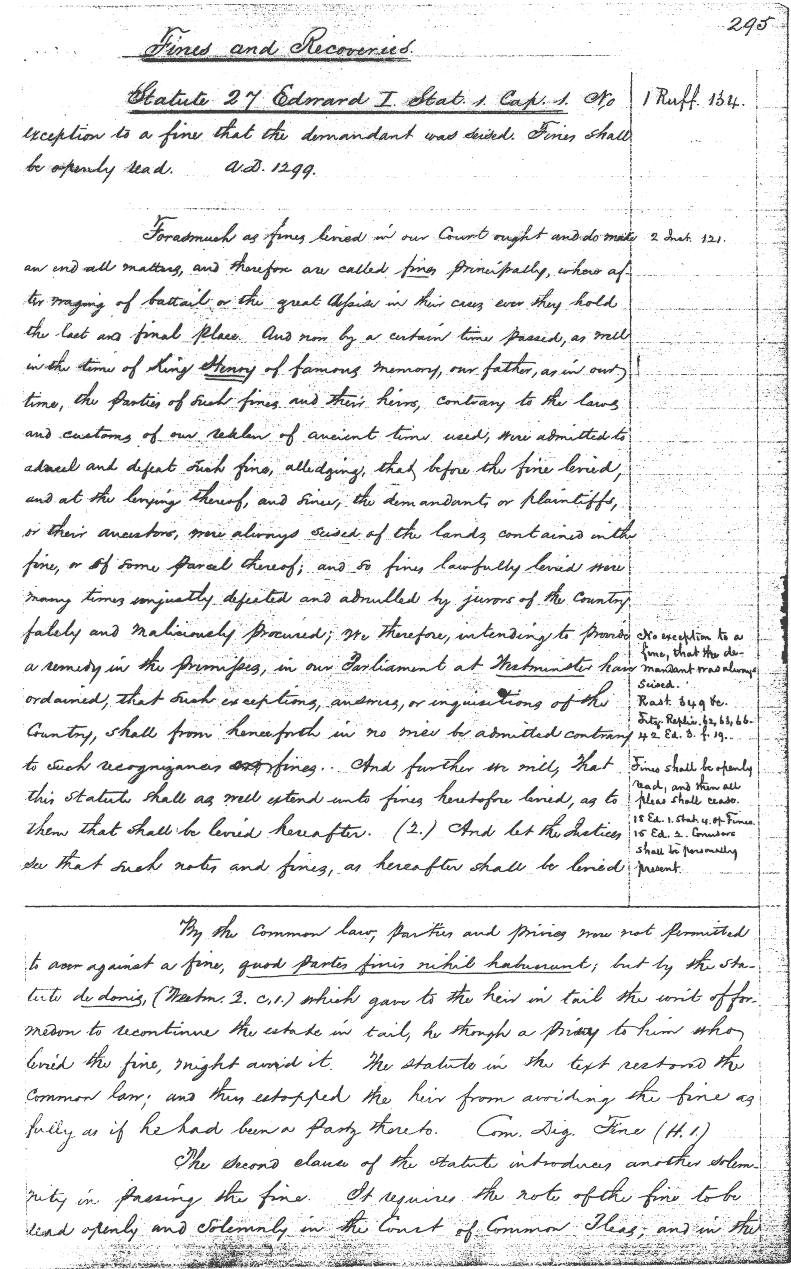 295
Fines and Recoveries.
Statute 27 Edward I. Stat. 1. Cap. 1. No
exception to a fine that the demandant was seised. Fines shall
be openly read. A.D. 1299.
1 Ruff. 134.
Forasmuch as fines levied in our Court ought and do make
an end all matters, and therefore are called fines principally, where af-
ter waging of battail or the great Assise in their cases ever they hold
the last and final place. And now by a certain time passed, as well
in the time of King Henry of famous memory, our father, as in our
time, the parties of such fines and their heirs, contrary to the laws
and customs of our realm of ancient time used, were admitted to
adnul and defeat such fines, alledging, that before the fine levied,
and at the levying thereof, and since, the demandants or plaintiffs,
or their ancestors, were always seised of the lands contained in the
fine, or of some parcel thereof; and so fines lawfully levied were
many times unjustly defeated and adnulled by jurors of the Country
falsely and maliciously procured; We therefore, intending to provide
a remedy in the premisses, in our Parliament at Westminster have
ordained, that such exceptions, answers, or inquisitions of the
Country, shall from henceforth in no wise be admitted contrary
to such recognizances or fines. And further we will, That
this statute shall as well extend unto fines heretofore levied, as to
them that shall be levied hereafter. (2.) And let the Justices
see that such notes and fines, as hereafter shall be levied
2 Inst. 121.
No exception to a
fine, that the de-
mandant was always
seised.
Rast. 349 &c.
Fitz. Replic. 62, 63, 66.
42 Ed. 3. f. 19.
Fines shall be openly
read, and then all
pleas shall cease.
18 Ed. 1. Stat. 4. of Fines.
15 Ed. 2. Conusors
shall be personally
present.
By the Common law, parties and privies were not permitted
to aver against a fine, quod partes finis nihil habuerunt; but by the Sta-
tute de donis, (Westm. 2. c. 1.) which gave to the heir in tail the writ of for-
medon to recontinue the estate in tail, he though a privy to him who
levied the fine, might avoid it. The statute in the text restored the
Common law; and thus estopped the heir from avoiding the fine as
fully as if he had been a party thereto. Com. Dig. Fine (H. 1.)
The second clause of the statute introduces another solem-
nity in passing the fine. It requires the note of the fine to be
read openly and solemnly in the Court of Common Pleas; and in the